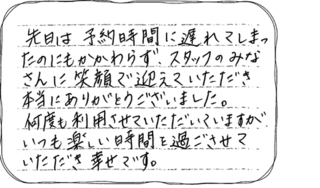 先日は 予約時間に遅れてしまっ
たのにもかかわらず、スタッフのみな
さんに 笑顔で迎えていただき
本当にありがとうございました。
何度も利用させていただいていますが、
いつも楽しい時間を過ごさせて
いただき 幸せです。